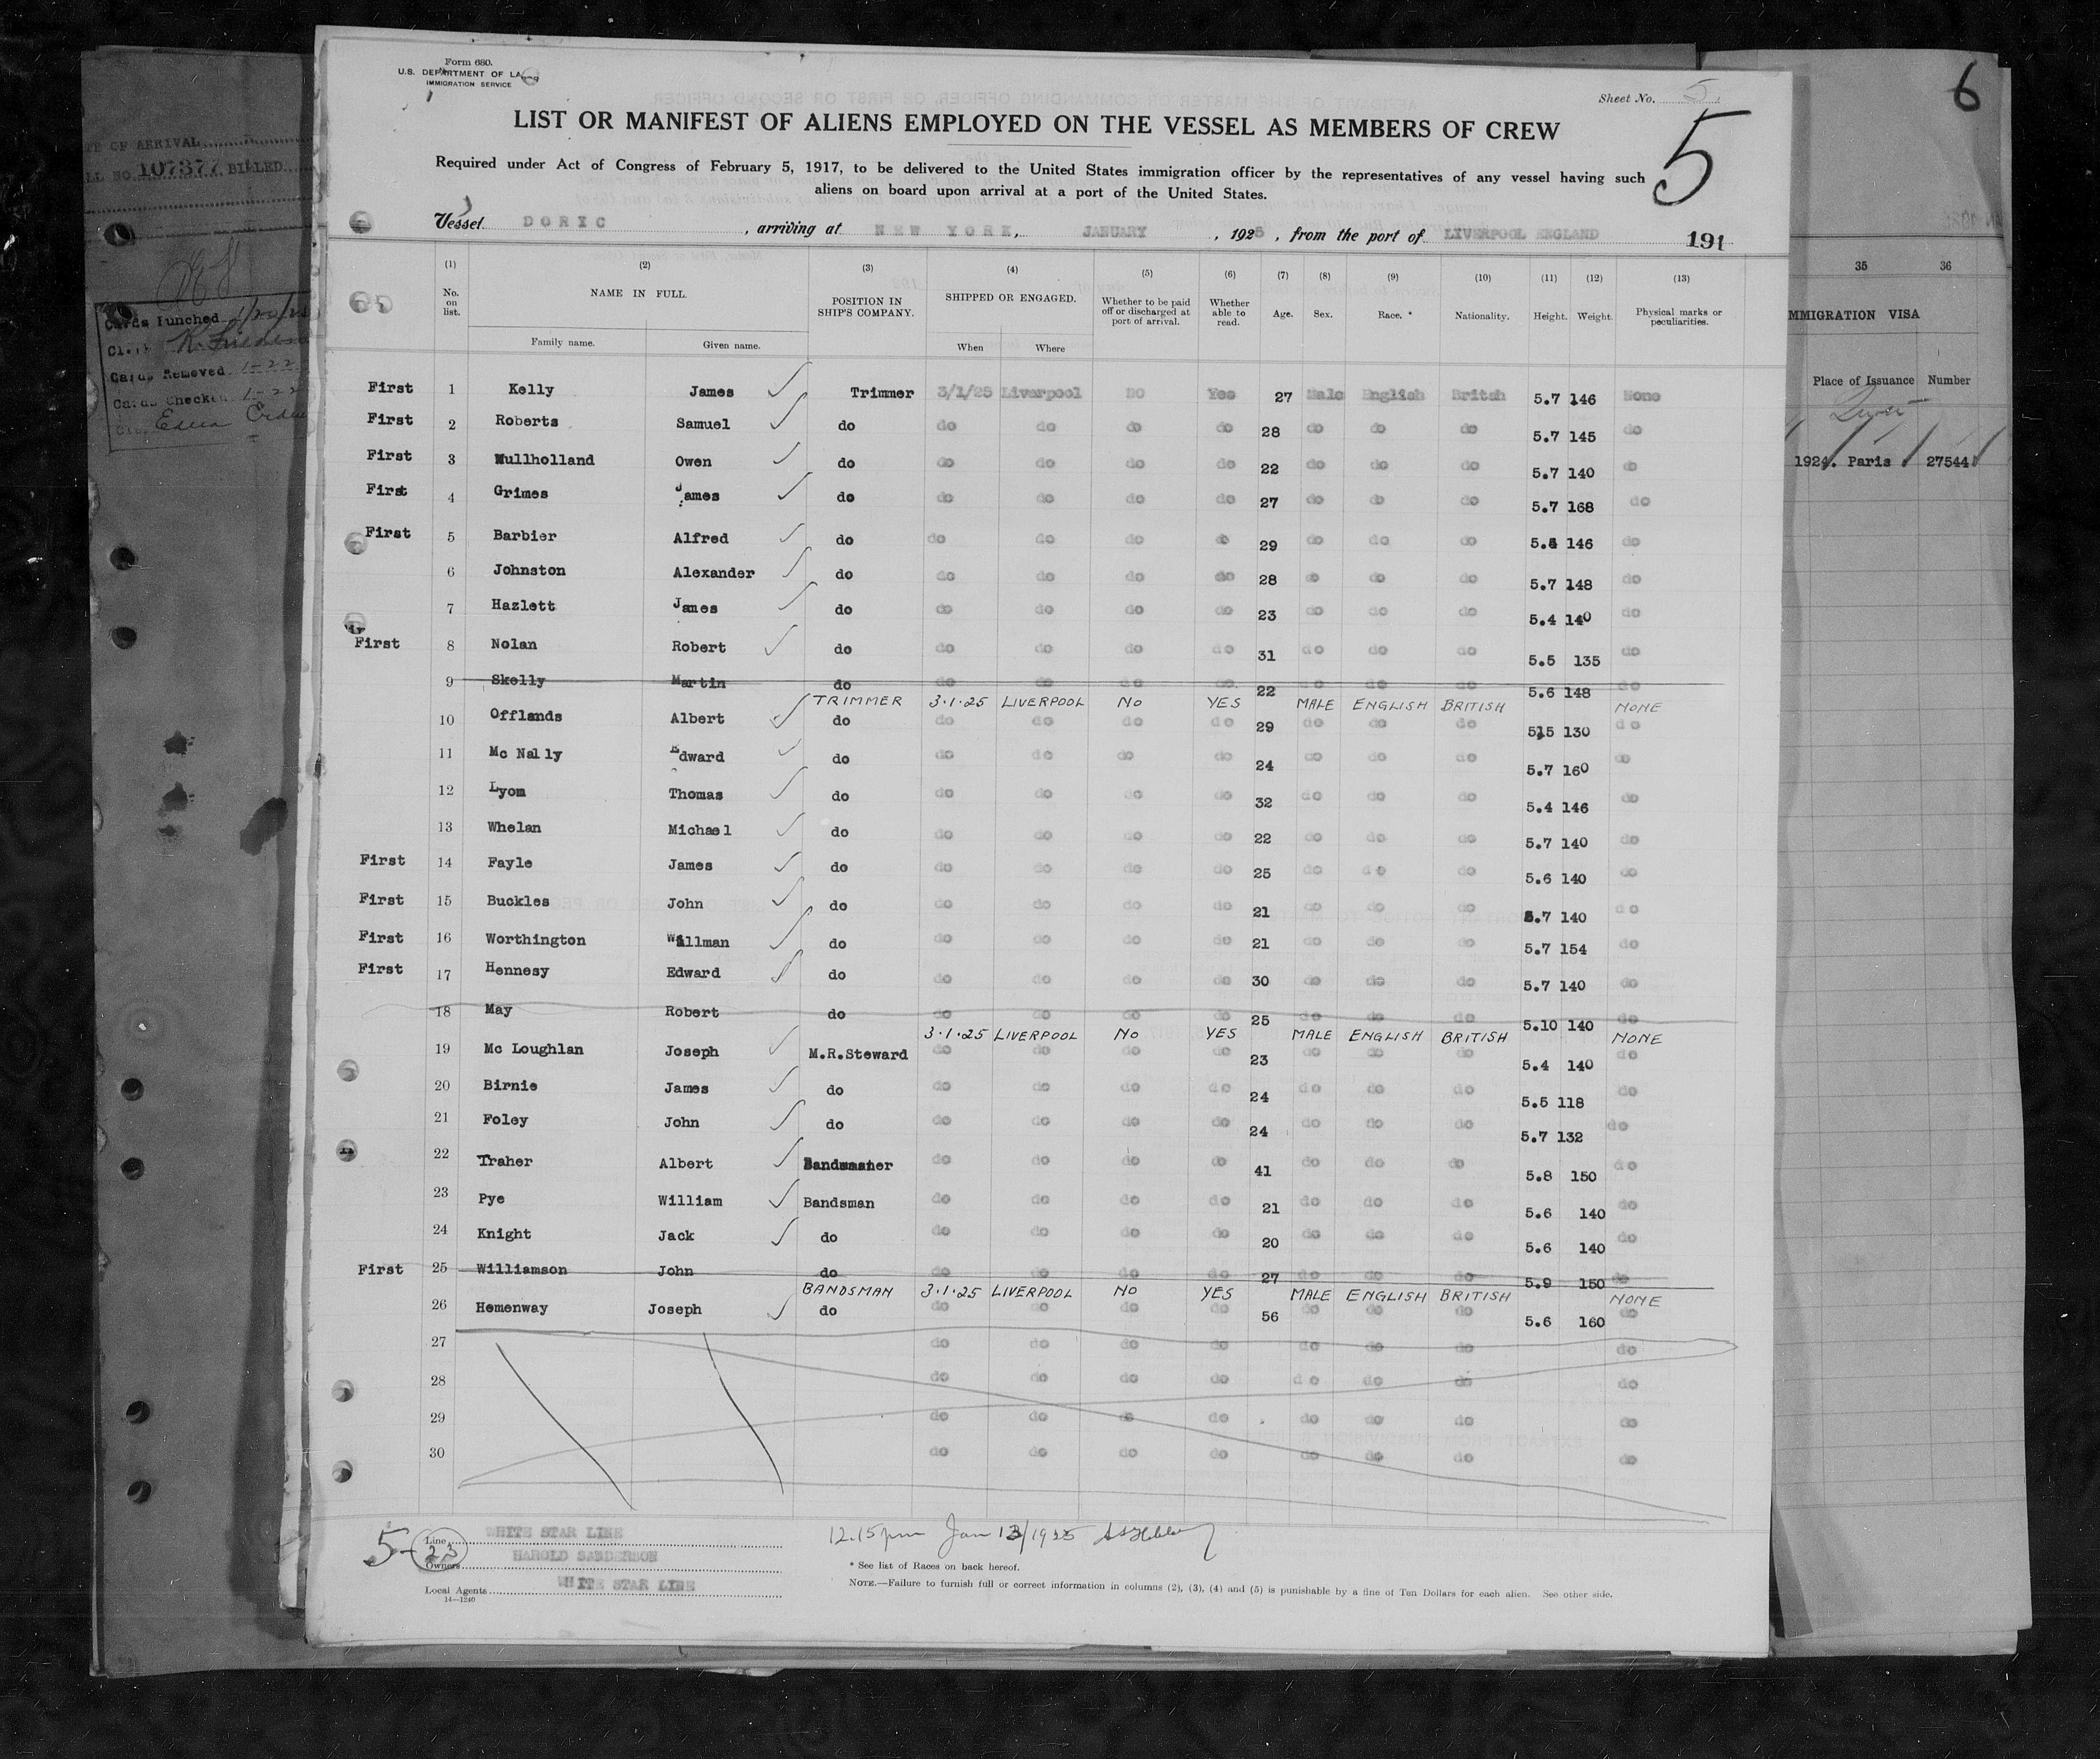 Form 680.
U.S. DEPARTMENT OF LABOR
IMMIGRATION SERVICE
Sheet No. 5.
5
6
LIST OR MANIFEST OF ALIENS EMPLOYED ON THE VESSEL AS MEMBERS OF CREW
Required under Act of Congress of February 5, 1917, to be delivered to the United States immigration officer by the representatives of any vessel having such
aliens on board upon arrival at a port of the United States.
Vessel DORIC, arriving at NEW YORK, JANUARY, 1925, from the port of LIVERPOOL ENGLAND 191
(1) (2) (3) (4) (5) (6) (7) (8) (9) (10) (11) (12) (13)
No. on list. NAME IN FULL. POSITION IN SHIP'S COMPANY. SHIPPED OR ENGAGED. Whether to be paid off or discharged at port of arrival. Whether able to read. Age. Sex. Race. * Nationality. Height. Weight. Physical marks or peculiarities.
Family name. Given name. When Where
First 1 Kelly James Trimmer 3/1/25 Liverpool NO Yes 27 Male English Britsh 5.7 146 None
First 2 Roberts Samuel do do do do do 28 do do do 5.7 145 do
First 3 Mullholland Owen do do do do do 22 do do do 5.7 140 do
First 4 Grimes James do do do do do 27 do do do 5.7 168 do
First 5 Barbier Alfred do do do do do 29 do do do 5. 146 do
6 Johnston Alexander do do do do do 28 do do do 5.7 148 do
7 Hazlett James do do do do do 23 do do do 5.4 140 do
First 8 Nolan Robert do do do do do 31 do do do 5.5 135 do
9 Skelly Martin do do do do do 22 do do do 5.6 148 do
TRIMMER 3.1.25 LIVERPOOL NO YES MALE ENGLISH BRITISH NONE
10 Offlands Albert do do do do do 29 do do do 5.5 130 do
11 Mc Nally Edward do do do do do 24 do do do 5.7 160 do
12 Lyom Thomas do do do do do 32 do do do 5.4 146 do
13 Whelan Michael do do do do do 22 do do do 5.7 140 do
First 14 Fayle James do do do do do 25 do do do 5.6 140 do
First 15 Buckles John do do do do do 21 do do do 5.7 140 do
First 16 Worthington Willman do do do do do 21 do do do 5.7 154 do
First 17 Hennesy Edward do do do do do 30 do do do 5.7 140 do
18 May Robert do do do do do 25 do do do 5.10 140 do
3.1.25 LIVERPOOL NO YES MALE ENGLISH BRITISH NONE
19 Mc Loughlan Joseph M.R.Steward do do do do 23 do do do 5.4 140 do
20 Birnie James do do do do do 24 do do do 5.5 118 do
21 Foley John do do do do do 24 do do do 5.7 132 do
22 Traher Albert Bandmaster do do do do 41 do do do 5.8 150 do
23 Pye William Bandsman do do do do 21 do do do 5.6 140 do
24 Knight Jack do do do do do 20 do do do 5.6 140 do
First 25 Williamson John do do do do do 27 do do do 5.9 150 do
BANDSMAN 3.1.25 LIVERPOOL NO YES MALE ENGLISH BRITISH NONE
26 Hemenway Joseph do do do do do 56 do do do 5.6 160 do
27 do do do do do do do do
28 do do do do do do do do
29 do do do do do do do do
30 do do do do do do do do
5-23
Line WHITE STAR LINE
Owners HAROLD SANDERSON
Local Agents WHITE STAR LINE
14—1240
12.15 pm Jan 13/1925
* See list of Races on back hereof.
NOTE.—Failure to furnish full or correct information in columns (2), (3), (4) and (5) is punishable by a fine of Ten Dollars for each alien. See other side.
OF ARRIVAL
NO. 107377 BILLED
Cards Punched 1/20/25
Cards Removed 1-22
Cards Checked 1-22
Edna
35 36
IMMIGRATION VISA
Place of Issuance Number
1924. Paris 27544